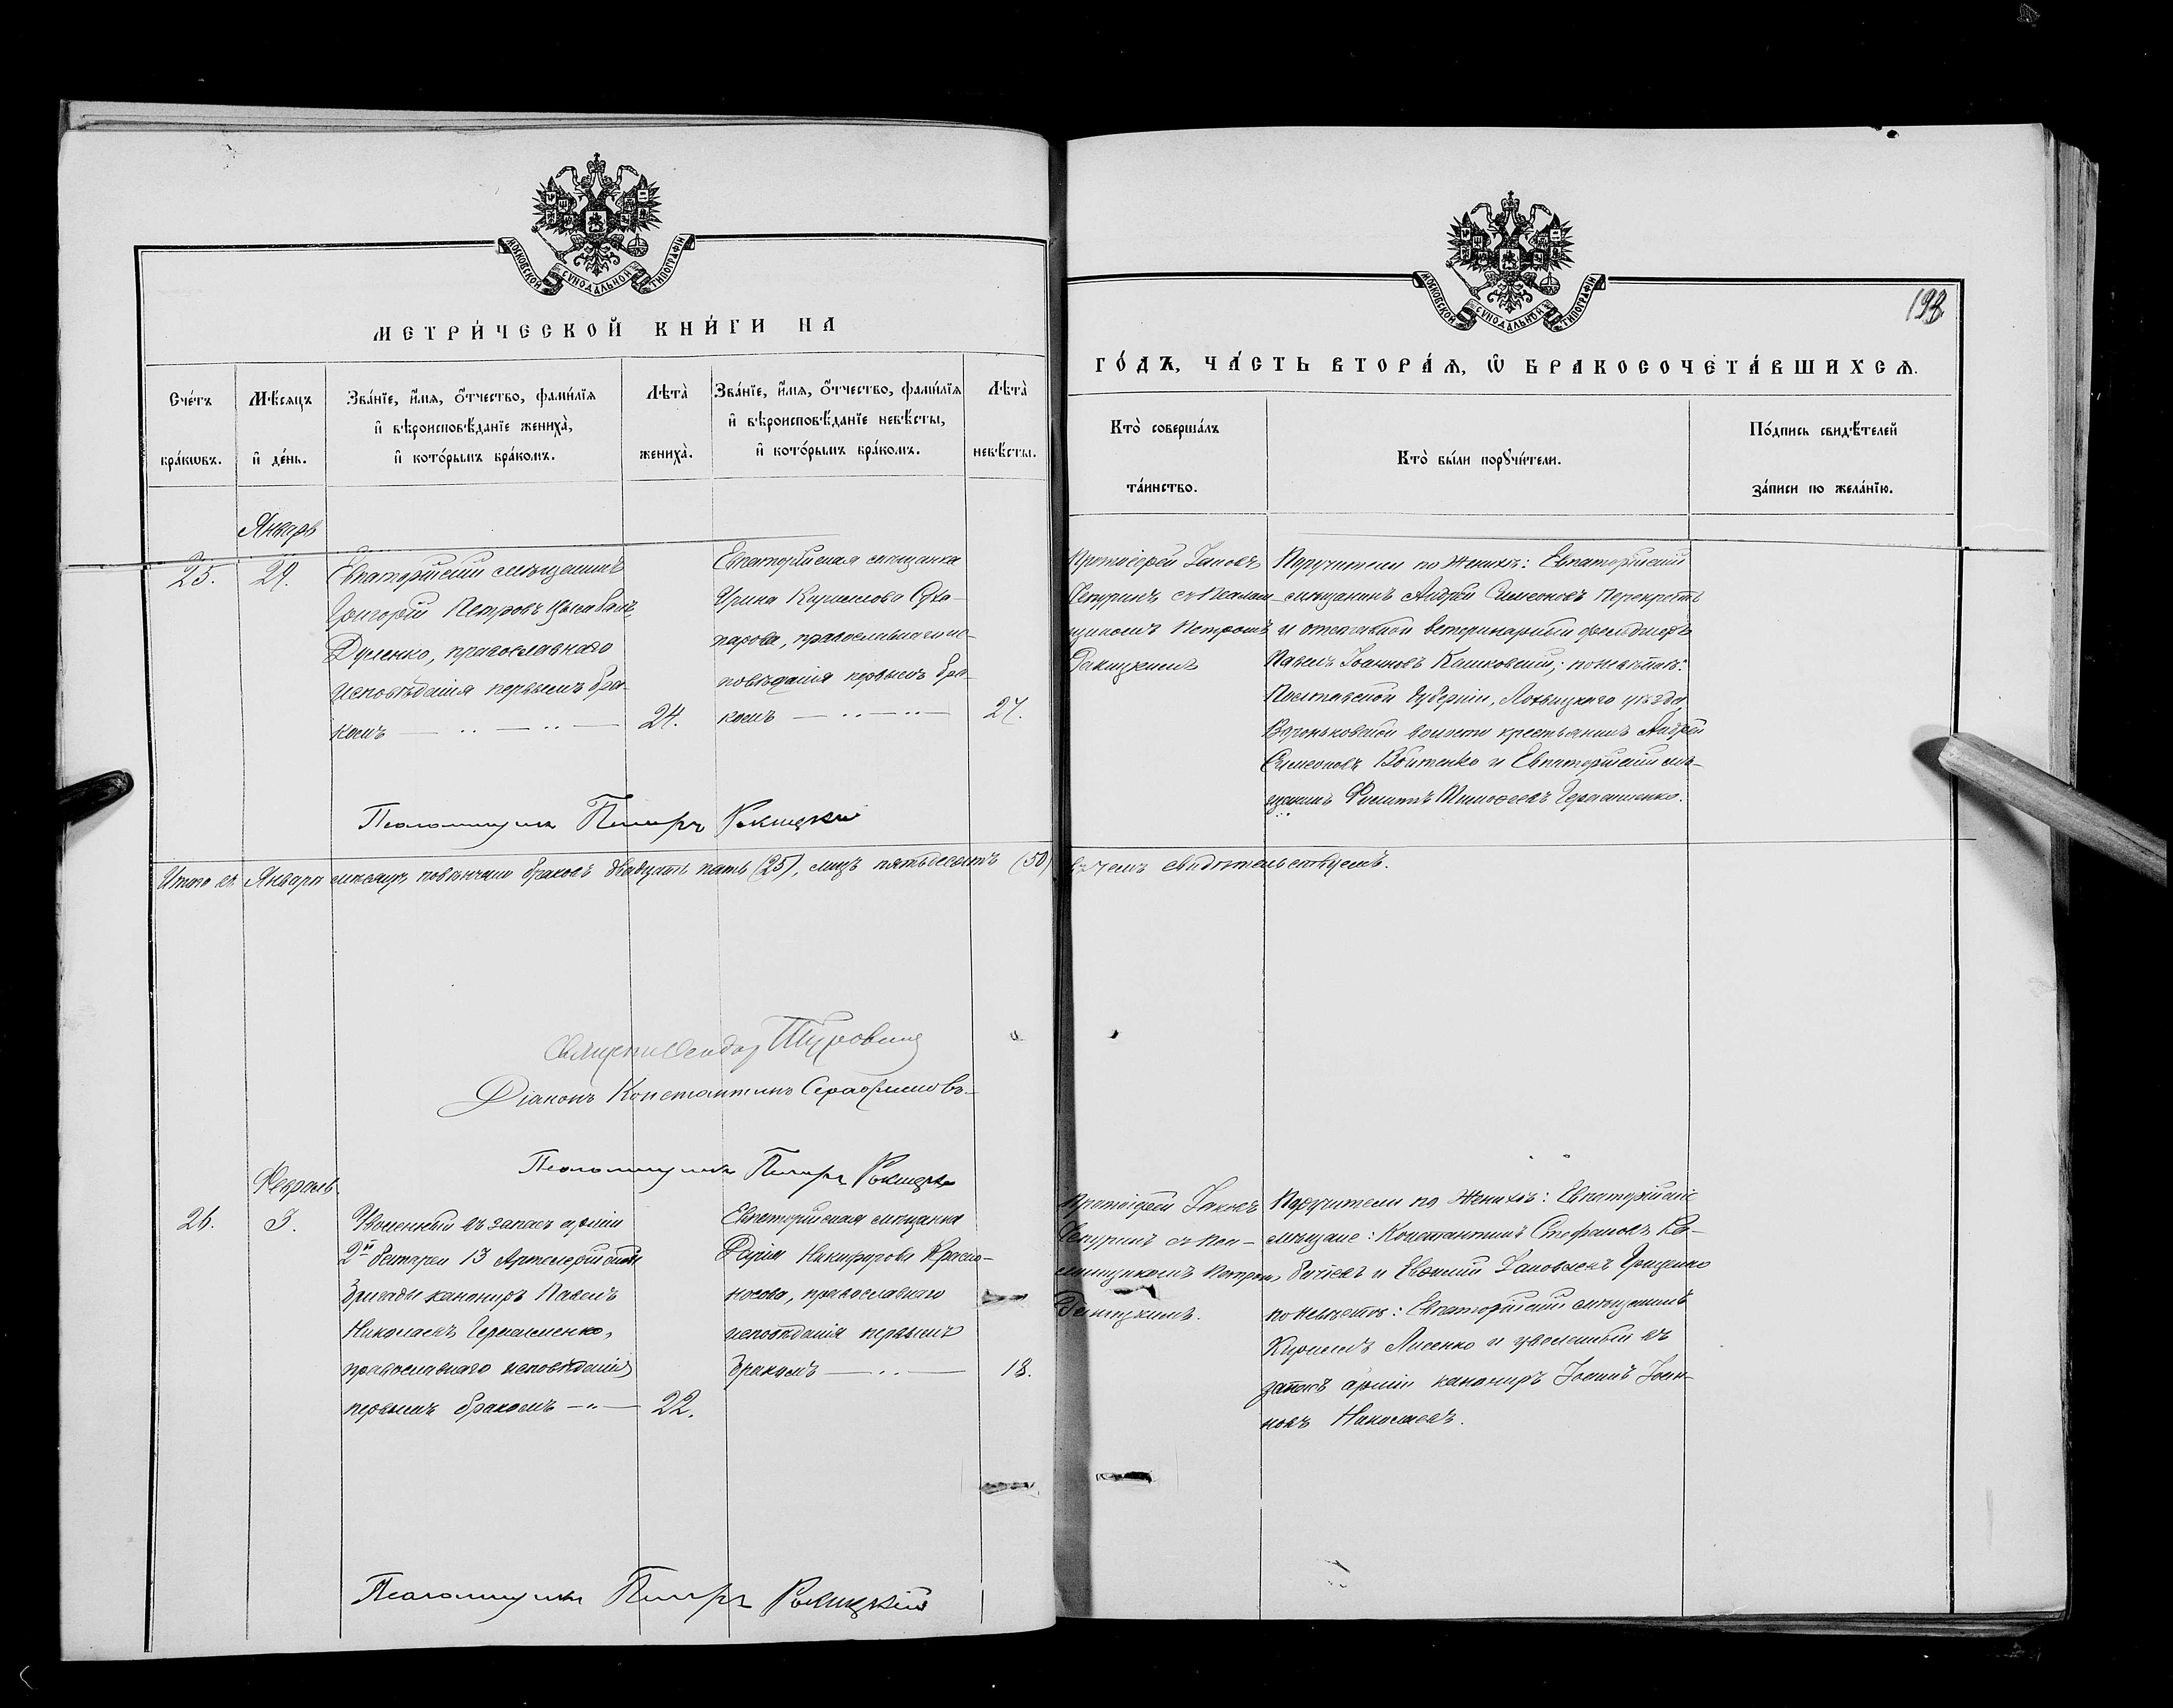 МОСКОВСКОЙ СѴНОДАЛЬНОЙ ТИПОГРАФІИ
МЕТРИ́ЧЕСКОЙ КНИ́ГИ НА
Сче́тъ бра́кѡвъ.
Мѣ́сяцъ и҆ де́нь.
Зва́нїе, и҆́мѧ, ѻ҆́тчество, фами́лїѧ
и҆ вѣроисповѣ́данїе жениха̀,
и҆ кото́рымъ бра́комъ.
Лѣта̀ жениха̀.
Зва́нїе, и҆́мѧ, ѻ҆́тчество, фами́лїѧ
и҆ вѣроисповѣ́данїе невѣ́сты,
и҆ кото́рымъ бра́комъ.
Лѣта̀ невѣ́сты.
Январь
25.
29.
Евпаторійскій мѣщанинъ
Григорій Петровъ
Дуленко, православнаго
исповѣданія первымъ бра-
комъ
24.
Евпаторійская мѣщанка
Ирина Кириллова Сухо-
парова, православнаго ис-
повѣданія первымъ бра-
комъ
Псаломщикъ Петръ Ракицкій
Итого въ Январѣ мѣсяцѣ повѣнчано браковъ двадцать пять (25), лицъ пятьдесятъ (50)
Діаконъ Константинъ Серафимовъ
Псаломщикъ Петръ Ракицкій
Февраль
26.
3.
Уволенный въ запасъ арміи
2й батареи 13 Артилерійской
бригады канониръ Павелъ
Николаевъ Герасименко,
православнаго исповѣданія
первымъ бракомъ
22.
Евпаторійская мѣщанка
Дарія Никифорова Красно-
носова, православнаго
исповѣданія первымъ
бракомъ
18.
Псаломщикъ Петръ Ракицкій
МОСКОВСКОЙ СѴНОДАЛЬНОЙ ТИПОГРАФІИ
ГО́ДЪ, ЧА́СТЬ ВТОРА́Ѧ, Ѽ БРАКОСОЧЕТА́ВШИХСѦ.
Кто̀ соверша́лъ та́инство.
Кто̀ бы́ли порꙋчи́тели.
По́дпись свидѣ́телей за́писи по жела́нїю.
Протоіерей Іаковъ
Чепуринъ съ Псалом-
щикомъ Петромъ
Ракицкимъ
Поручители по женихѣ: Евпаторійскій
мѣщанинъ Андрей Симеоновъ Перекрестъ
и отставной ветеринарный фельдшеръ
Павелъ Іоанновъ Кашковскій; по невѣстѣ:
Полтавской Губерніи, Лохвицкаго уѣзда,
Вороньковской волости крестьянинъ Андрей
Симеоновъ Войтенко и Евпаторійскій мѣ-
щанинъ Филиппъ Герасименко.
въ чемъ свидѣтельствуемъ.
Протоіерей Іаковъ
Чепуринъ съ Пса-
ломщикомъ Петромъ
Ракицкимъ.
Поручители по женихѣ: Евпаторійскіе
мѣщане: Константинъ Стефановъ
и Евфимій Іаковлевъ Грищенко
по невѣстѣ: Евпаторійскій мѣщанинъ
Кириллъ Лисенко и уволенный въ
запасъ арміи канониръ Іоаннъ Іоан-
новъ Николаевъ.